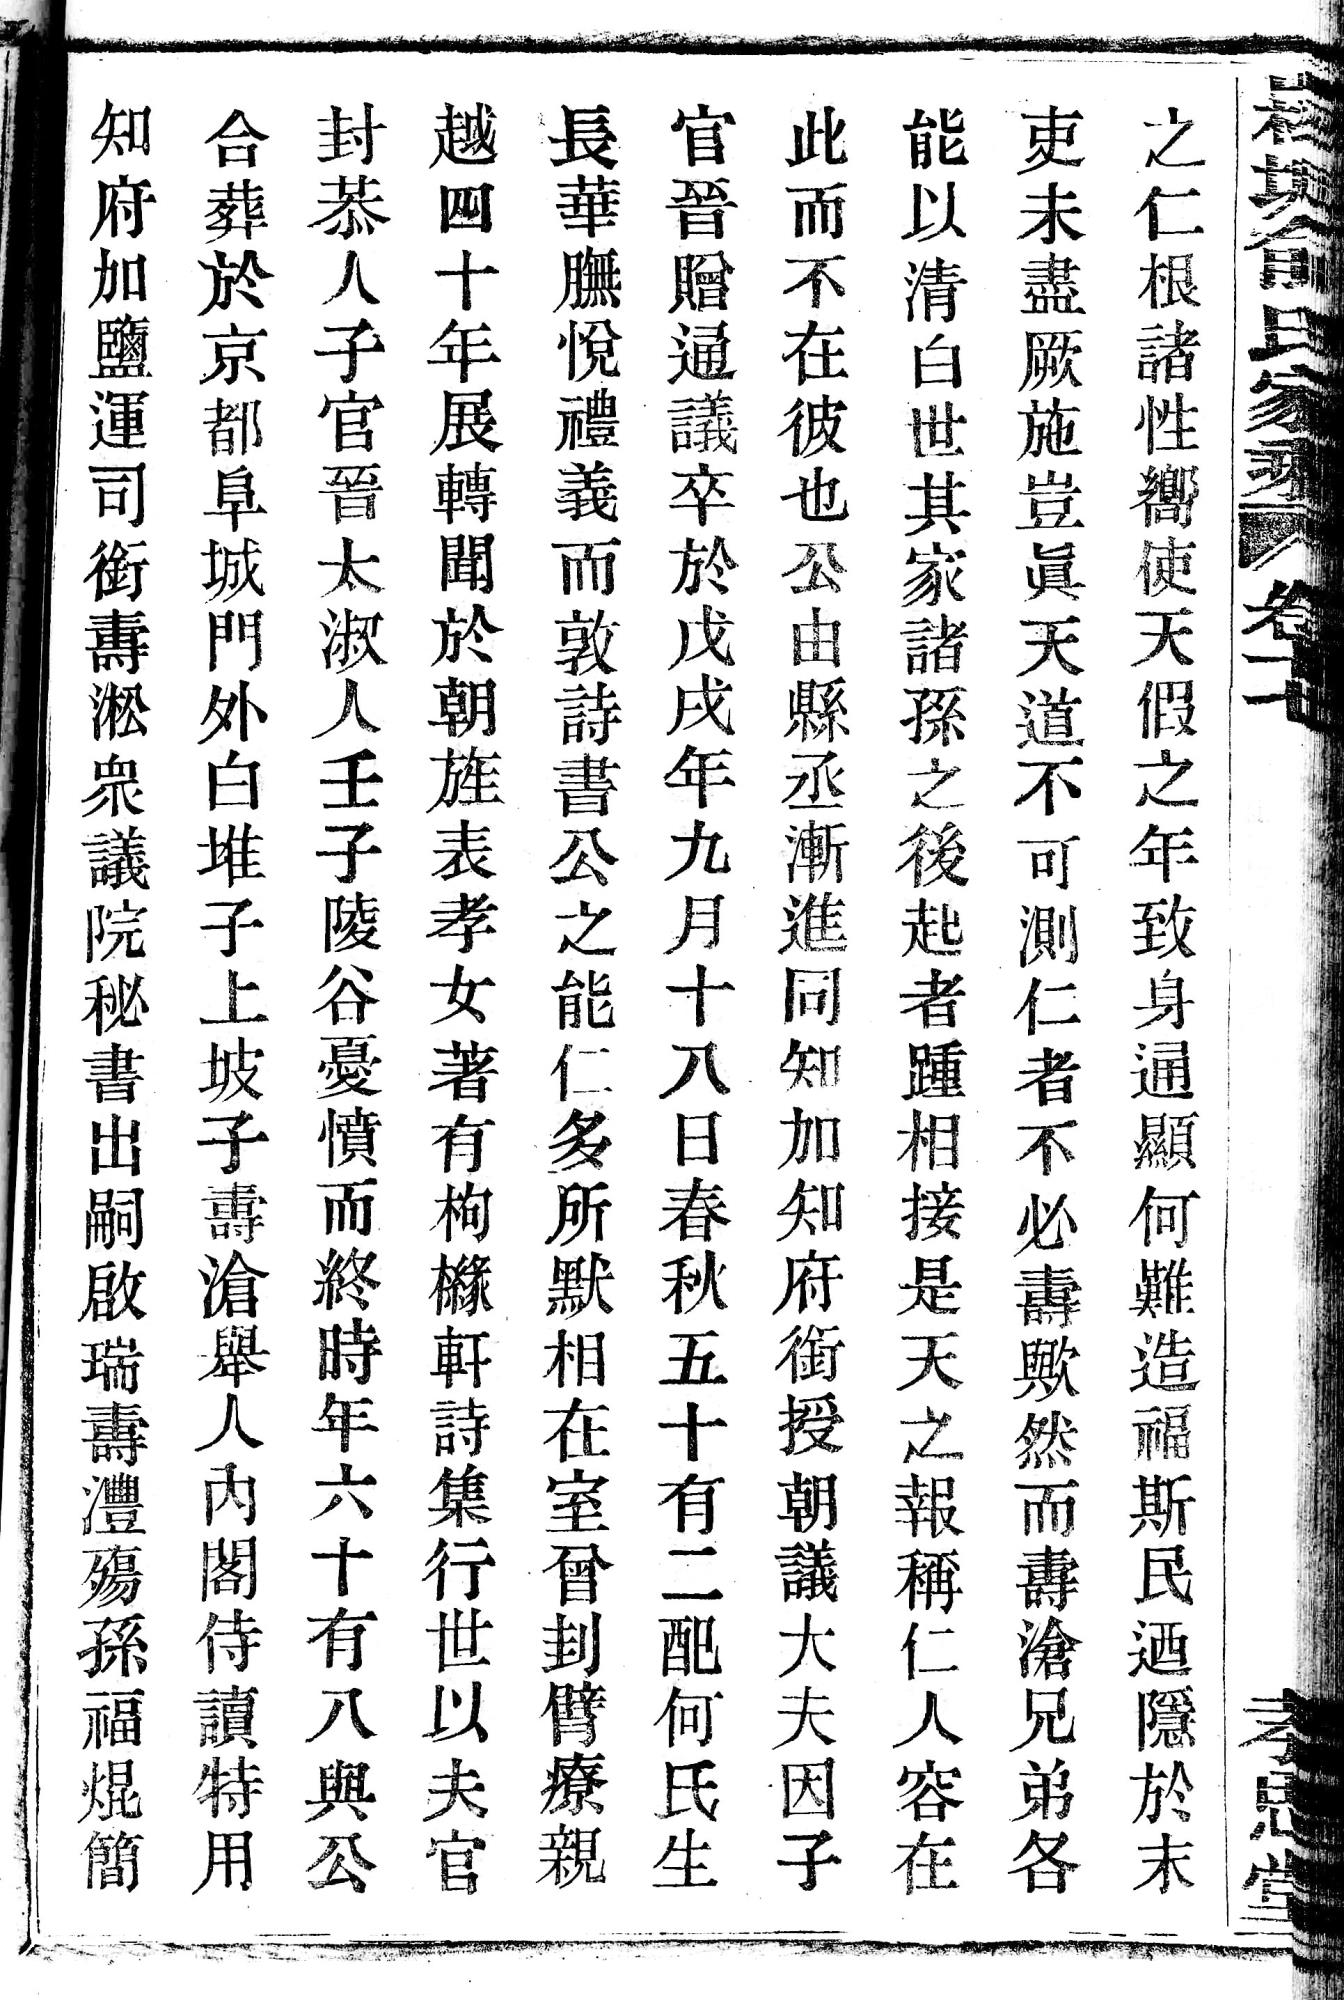 之仁根諸性嚮使天假之年致身通顯何難造福斯民迺隱於末
吏未盡厥施豈眞天道不可測仁者不必壽歟然而壽滄兄弟各
能以清白世其家諸孫之後起者踵相接是天之報稱仁人容在
此而不在彼也公由縣丞漸進同知加知府銜授朝議大夫因子
官晉贈通議卒於戊戌年九月十八日春秋五十有二配何氏生
長華膴悅禮義而敦詩書公之能仁多所默相在室曾刲臂療親
越四十年展轉聞於朝旌表孝女著有枸櫞軒詩集行世以夫官
封恭人子官晉太淑人壬子陵谷憂憤而終時年六十有八與公
合葬於京都阜城門外白堆子上坡子壽滄舉人內閣侍讀特用
知府加鹽運司銜壽淞衆議院秘書出嗣啟瑞壽灃殤孫福焜簡
氏家乘
孝思堂